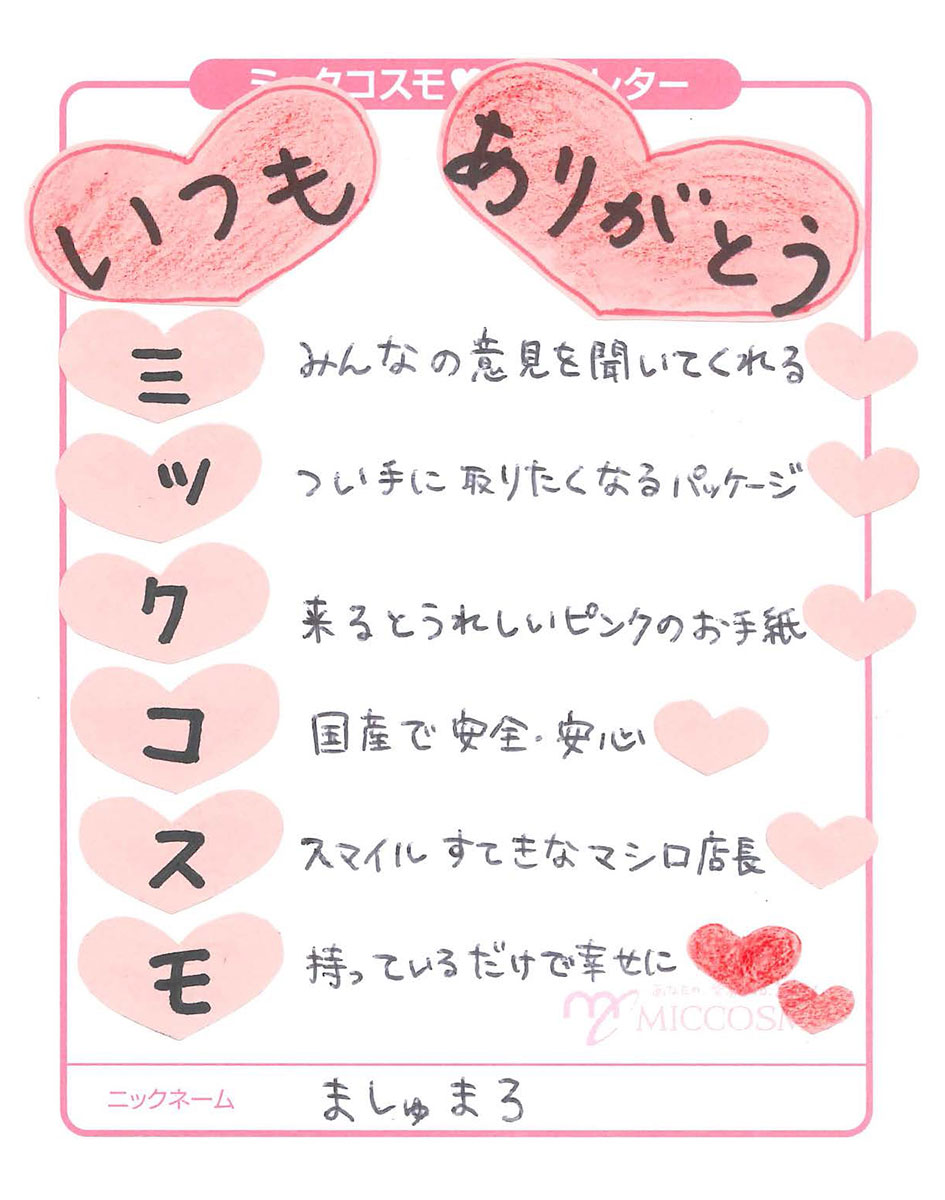 ミックコスモ♥ レター
いつも ありがとう
ミ みんなの意見を聞いてくれる
ッ つい手に取りたくなるパッケージ
ク 来るとうれしいピンクのお手紙
コ 国産で安全・安心
ス スマイルすてきなマシロ店長
モ 持っているだけで幸せに
MICCOSM
ニックネーム ましゅまろ